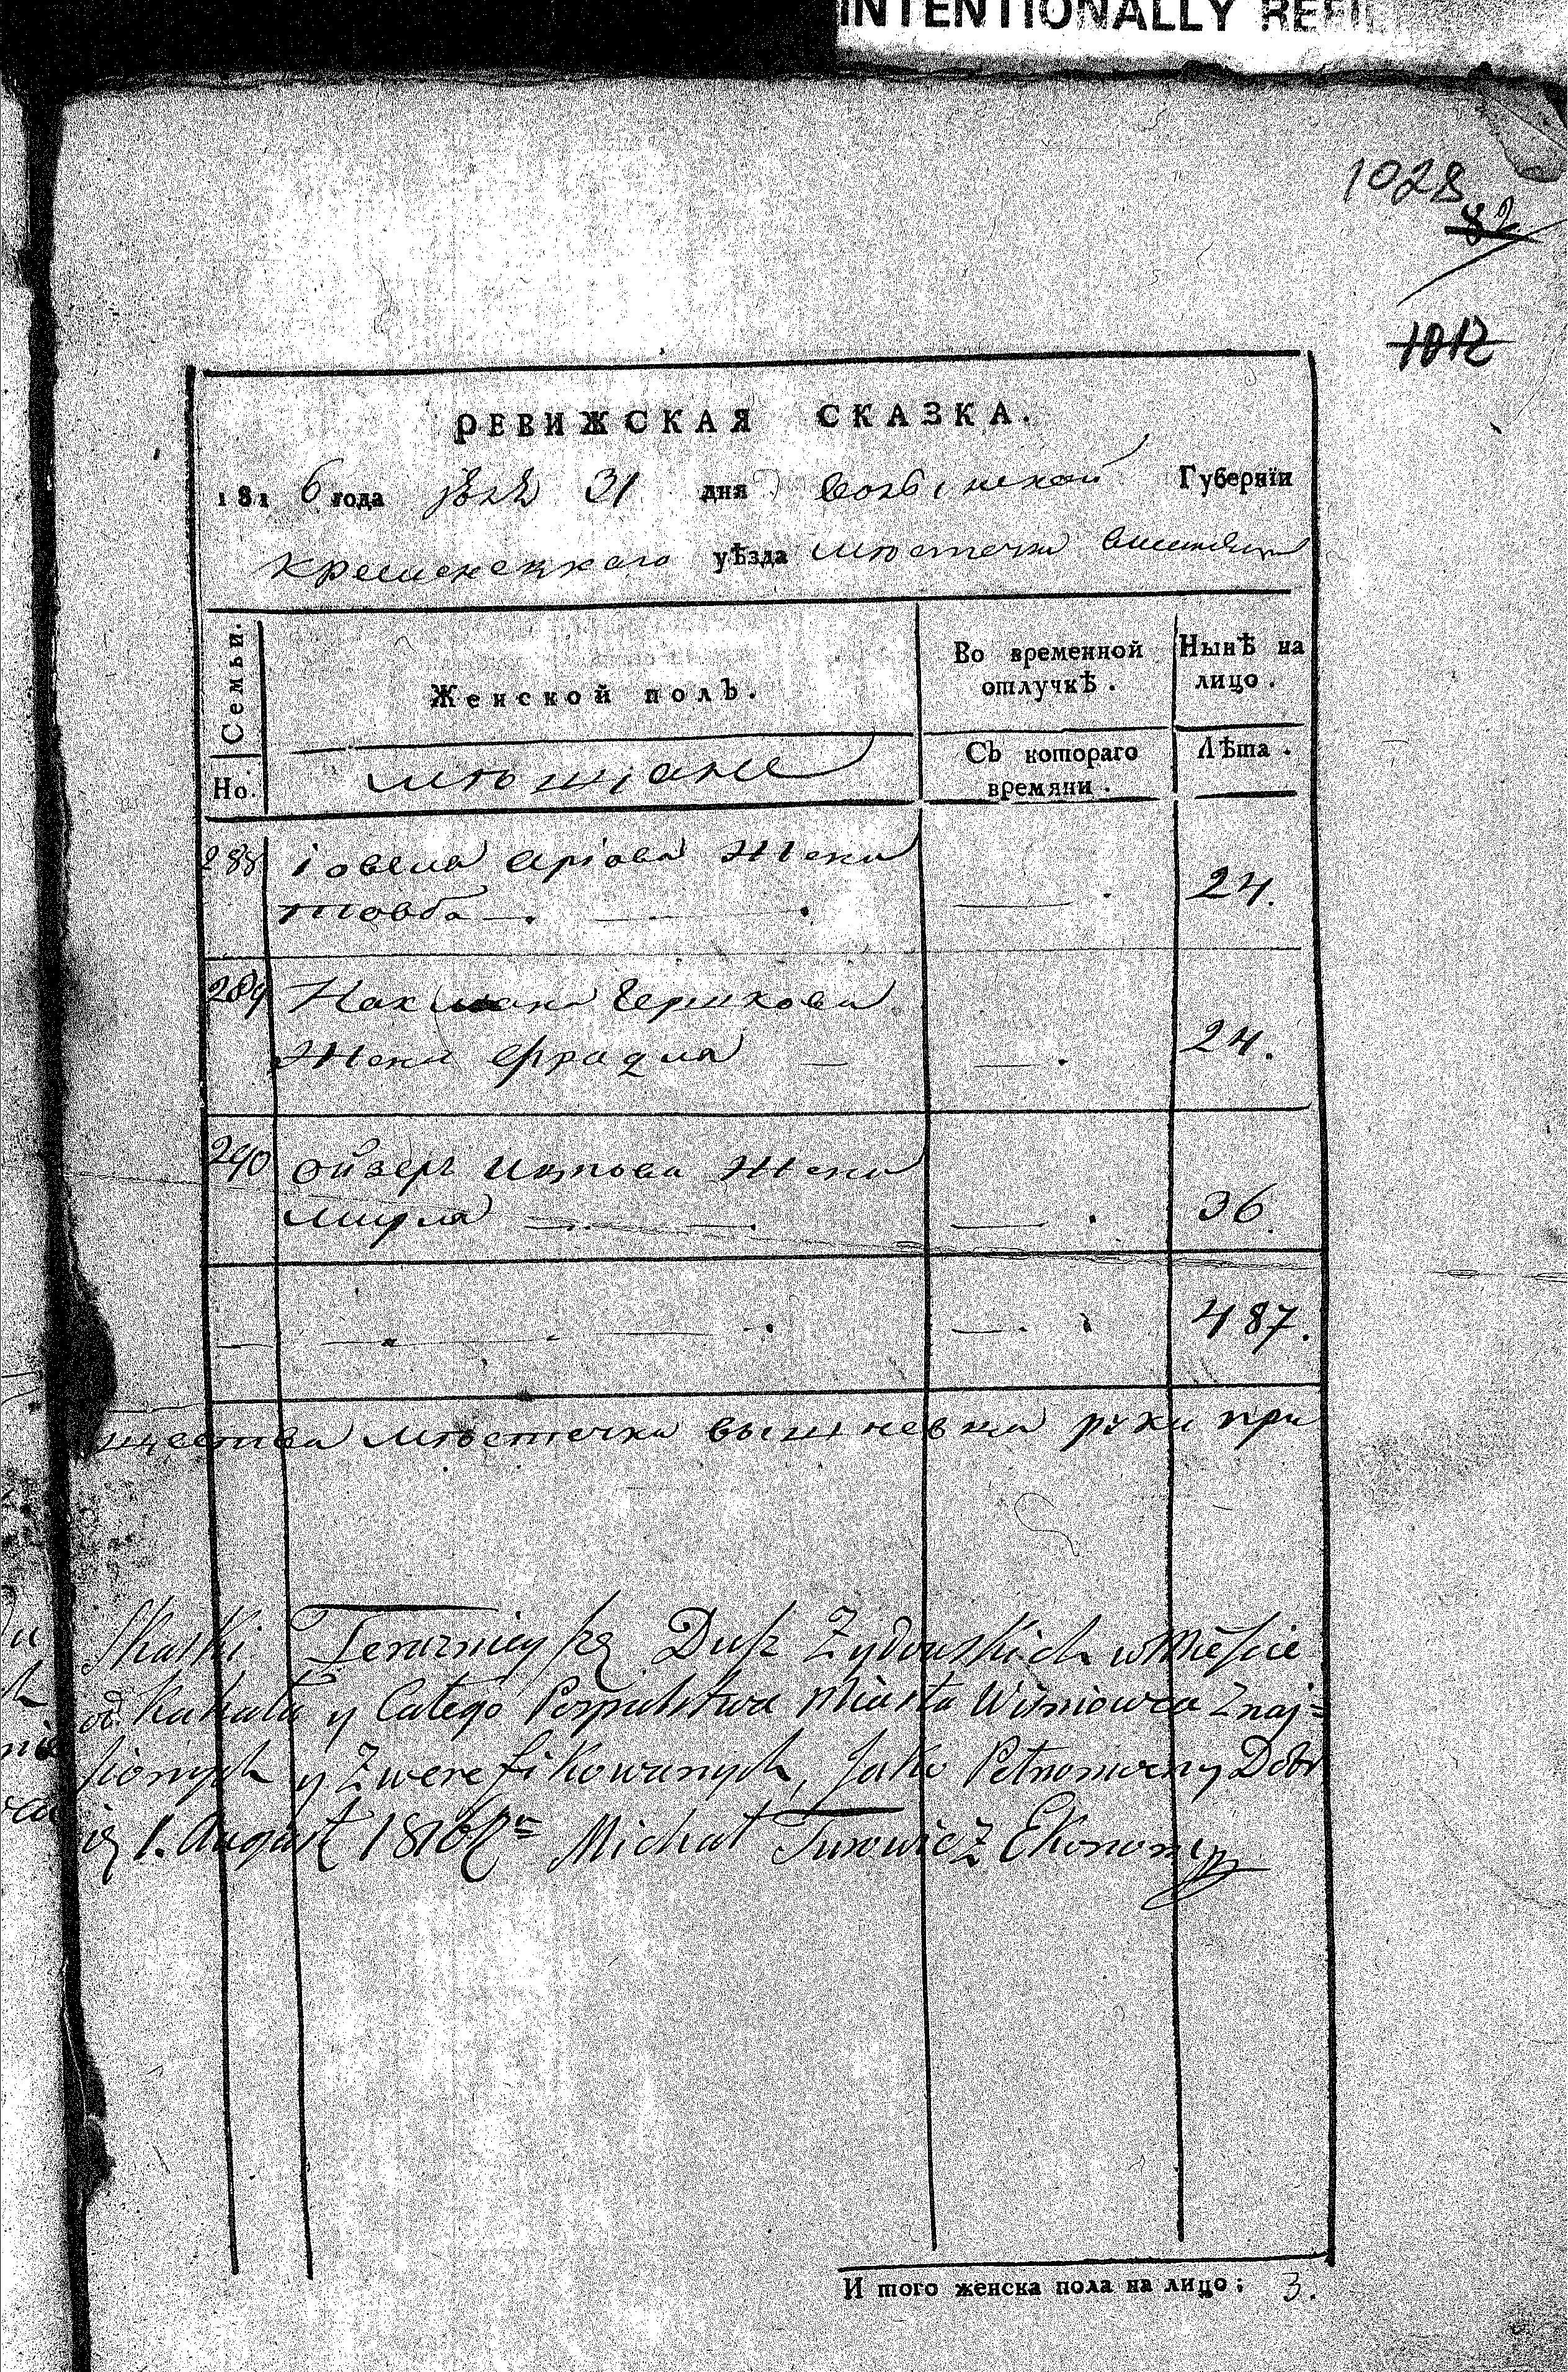 INTENTIONALLY REFIL
1028
82
1012
РЕВИЖСКАЯ СКАЗКА.
1816 года 31 дня Губернїи
Кременецкаго уѣзда мѣстечка
Семьи. Но.
Женской полъ.
мѣщане
Во временной отлучкѣ.
Съ котораго времяни.
Нынѣ на лицо.
Лѣта.
288 Іовеля Аріова Жена
Товба 24.
289 Нахмана Гершкова
Жена Фрадля 24.
290 Ойзера Ицкова Жена
Мирля 36.
487.
щества мѣстечка вышневка руки при
Skaski Duſz Zydowskich w Mieſcie
od Kahału y Całego Pospulstwa Miasta Wiśniowca Znaj=
y Zwerefikowanych, Jako
1. August 1816 Michał Turowicz Ekonom
И того женска пола на лицо: 3.